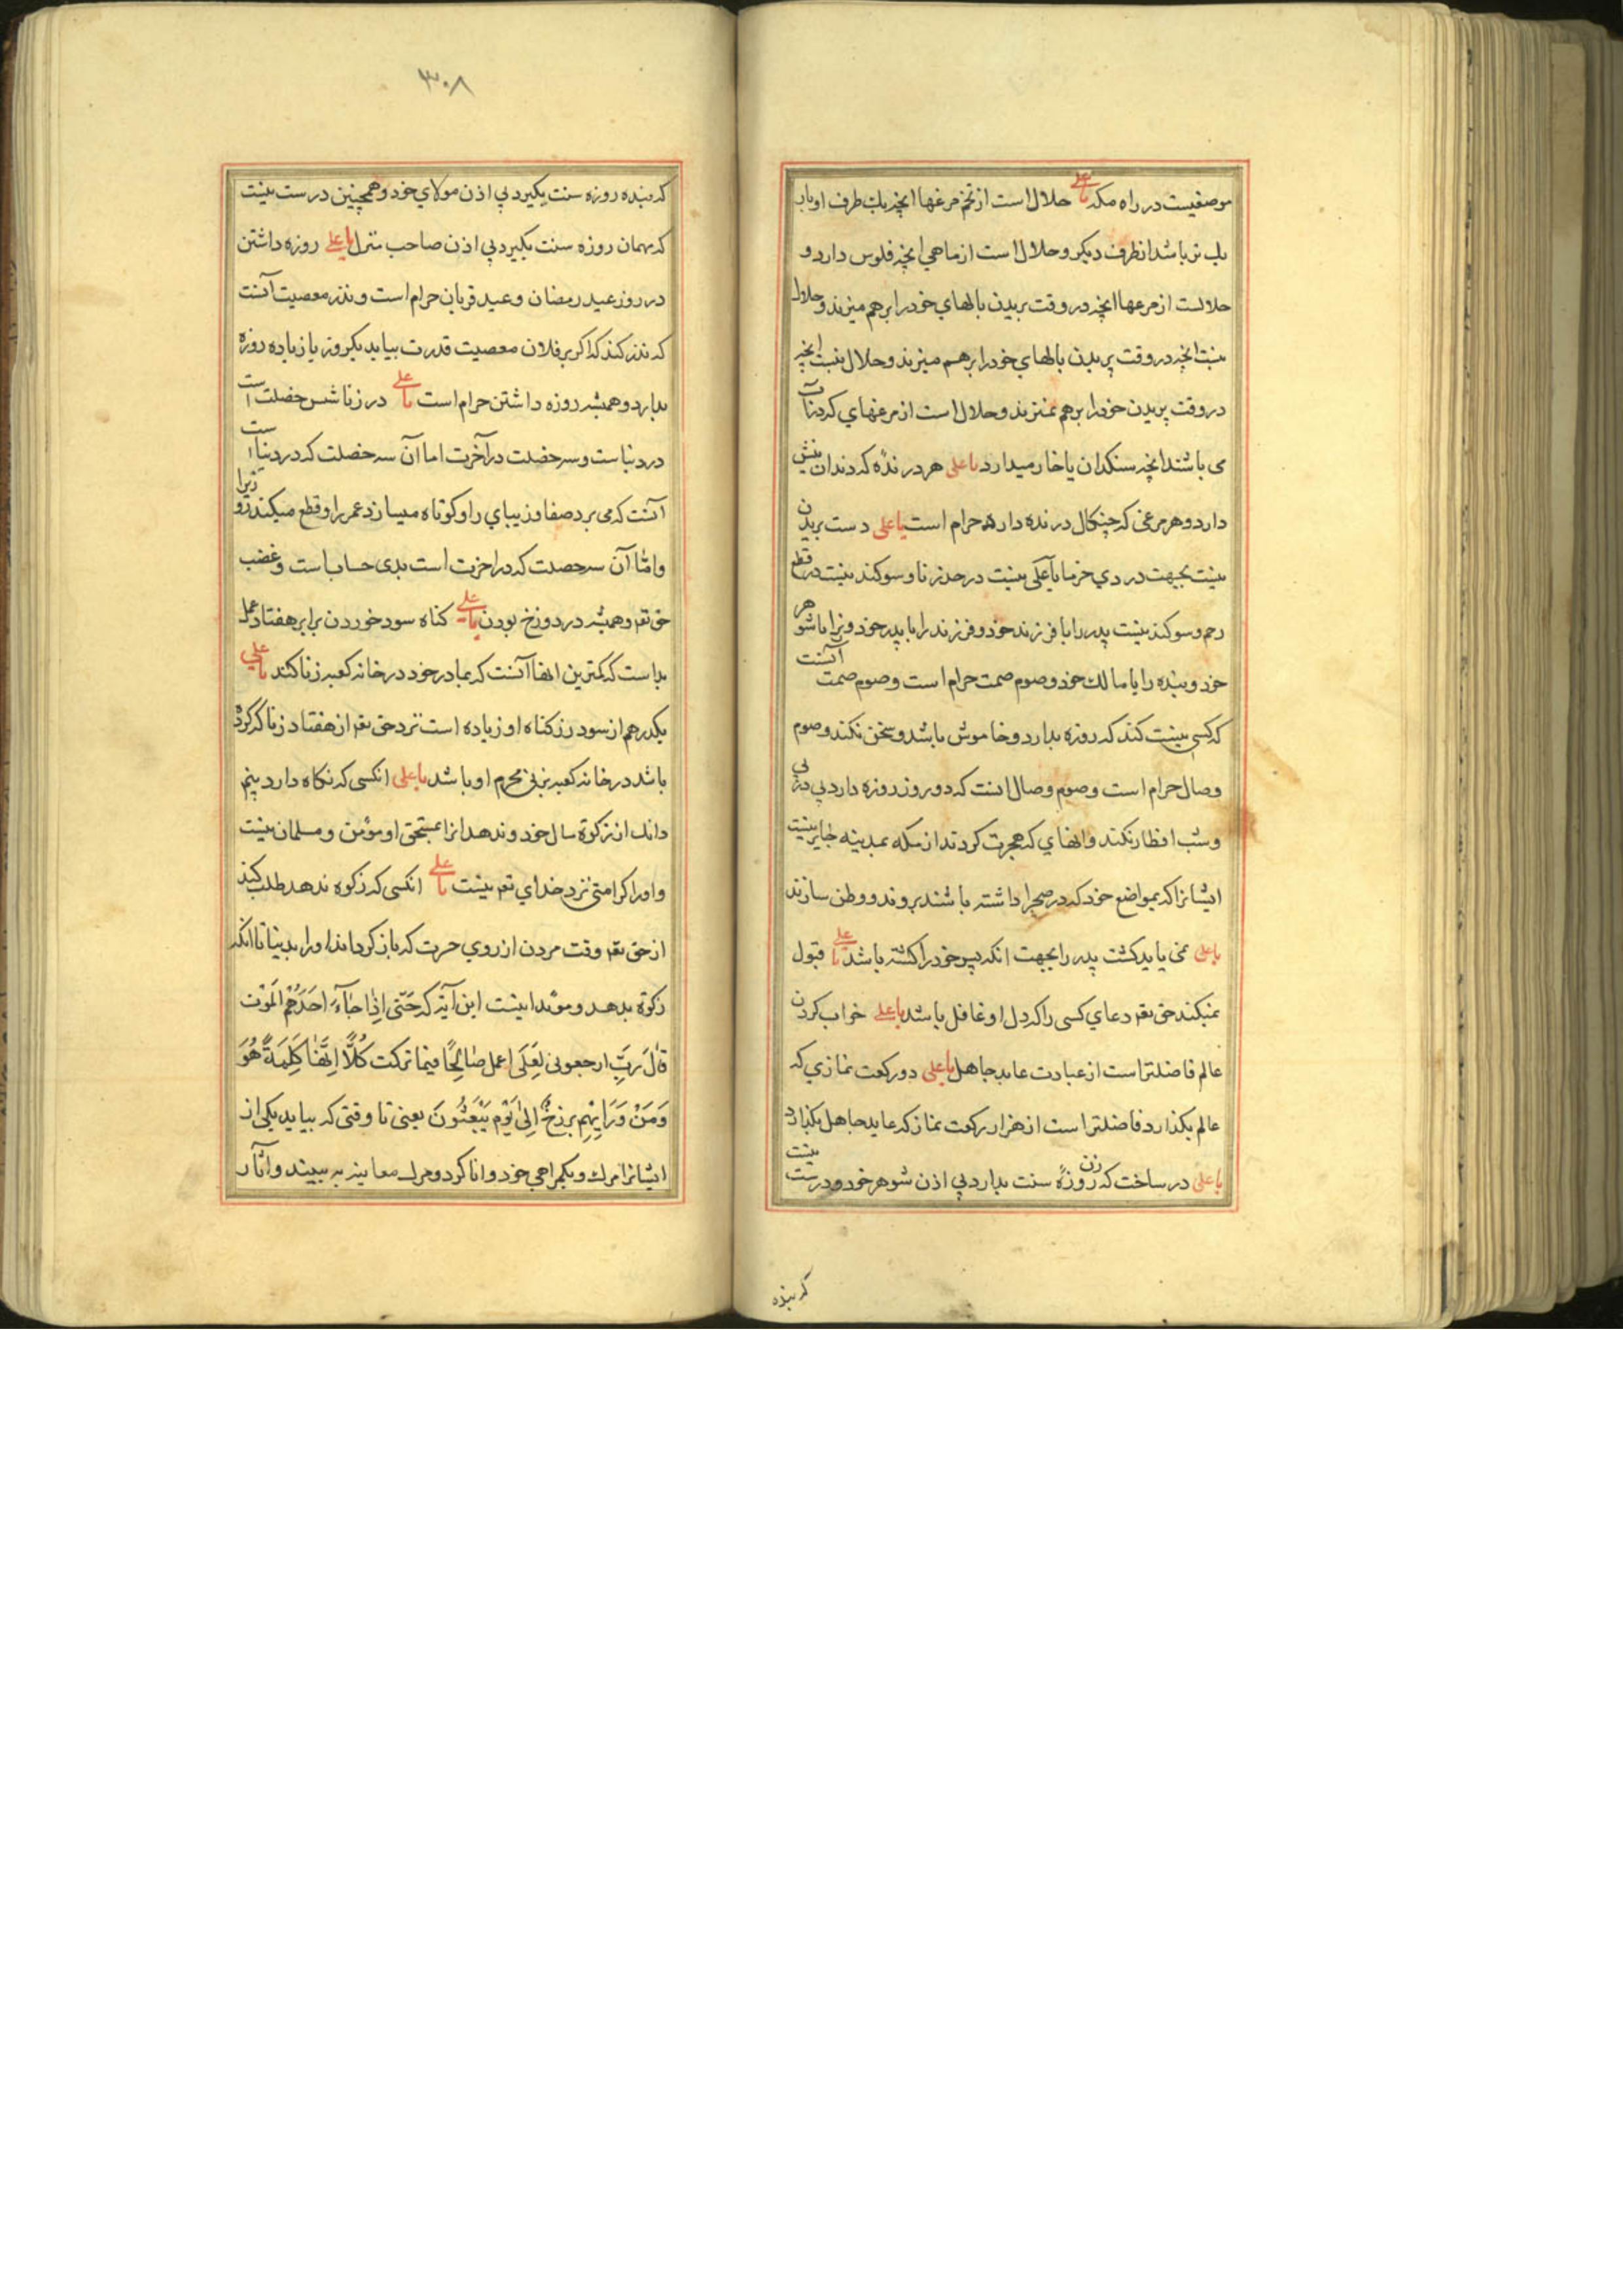 موضعیست در راه مکه یا علی حلال است از تخم مرغها انچه یک طرف او باریک
یک تر باشد از طرف دیکر و حلال است از ماهی انچه فلوس دارد و
حلالست از مرغها انچه در وقت پریدن بالهای خود را برهم میزند و حلال
نیست انچه در وقت پریدن بالهای خود را برهم میزند و حلال نیست انچه
در وقت پریدن خود را برهم نمیزند و حلال است از مرغهای که در
می باشند انچه سنکدان یا خار میدارد یا علی هر درنده که دندان نیش
دارد و هر مرغی که چنکال درنده دارد حرام است یا علی دست بریدن
نیست بجهت دزدی خرما یا علی نیست در حد زنا و سوکند نیست در قطع
رحم و سوکند نیست پدر را با فرزند خود و فرزند را با پدر خود و زن را با شوهر
خود و بنده را با مالک خود و صوم صمت حرام است و صوم صمت آنست
که کسی نیت کند که روزه بدارد و خاموش باشد و سخن نکند و صوم
وصال حرام است و صوم وصال انست که دو روز روزه دارد بی در پی
و شب افطار نکند و انهای که هجرت کردند از مکه بمدینه جایز نیست
ایشانرا که بمواضع خود که در صحرا داشته باشند بروند و وطن سازند
یا علی نمی باید کشت پدر را بجهت انکه پسر خود را کشته باشد یا علی قبول
نمیکند حق تعم دعای کسی را که دل او غافل باشد یا علی خواب کردن
عالم فاضلتر است از عبادت عابد جاهل یا علی دو رکعت نمازی که
عالم بکذارد فاضلتر است از هزار رکعت نماز که عابد جاهل بکذارد
یا علی در ساخت که زن روزهٔ سنت بدارد بی اذن شوهر خود و درست نیست
که بنده
۳۰۸
که بنده روزه سنت بکیرد بی اذن مولای خود و همچنین درست نیست
که مهمان روزه سنت بکیرد بی اذن صاحب منزل یا علی روزه داشتن
در روز عید رمضان و عید قربان حرام است و نذر معصیت آنست
که نذر کند که اکر بر فلان معصیت قدرت بیابد یکروز یا زیاده روزه
بدارد و همیشه روزه داشتن حرام است یا علی در زنا شش خصلت است
در دنیاست و سه خصلت در آخرت اما آن سه خصلت که در دنیا است
آنست که می برد صفا و زیبای را و کوتاه میسازد عمر را و قطع میکند روزیرا
و امّا آن سه خصلت که در اخرت است بدی حساب است و غضب
حق تعم و همیشه در دوزخ بودن یا علی کناه سود خوردن برابر هفتاد عمل
بد است که کمترین انها آنست که بمادر خود در خانه کعبه زنا کند یا علی
یکدرهم از سود در کناه او زیاده است نزد حق تعم از هفتاد زنا که کرده
باشد در خانه کعبه بزنی محرم او باشد یا علی انکسی که نکاه دارد پنجم
دانک از زکوة مال خود و ندهد انرا بمستحق او مؤمن و مسلمان نیست
و او را کرامتی نزد خدای تعم نیست یا علی انکسی که زکوه ندهد طلب کند
از حق تعم وقت مردن از روی حسرت که باز کرداند او را بدنیا تا انکه
زکوة بدهد و مؤید اینست این آیة که حَتّی اِذَا جَاۤءَ اَحَدَهُمُ الْمَوْت
قٰالَ رَبِّ ارجعونی لَعَلّی اعمل صٰالِحًا فیما ترکت کَلّاۤ اِنَّهَا کَلِمَةٌ هُوَ
وَمَنْ وَرَایِهِم برزخٌ اِلیٰ یَوْمِ یُبْعَثُونَ یعنی تا وقتی که بیاید یکی از
ایشانرا مرک و بکمراهی خود دانا کردد و مرک معاینه به بیند و آثار